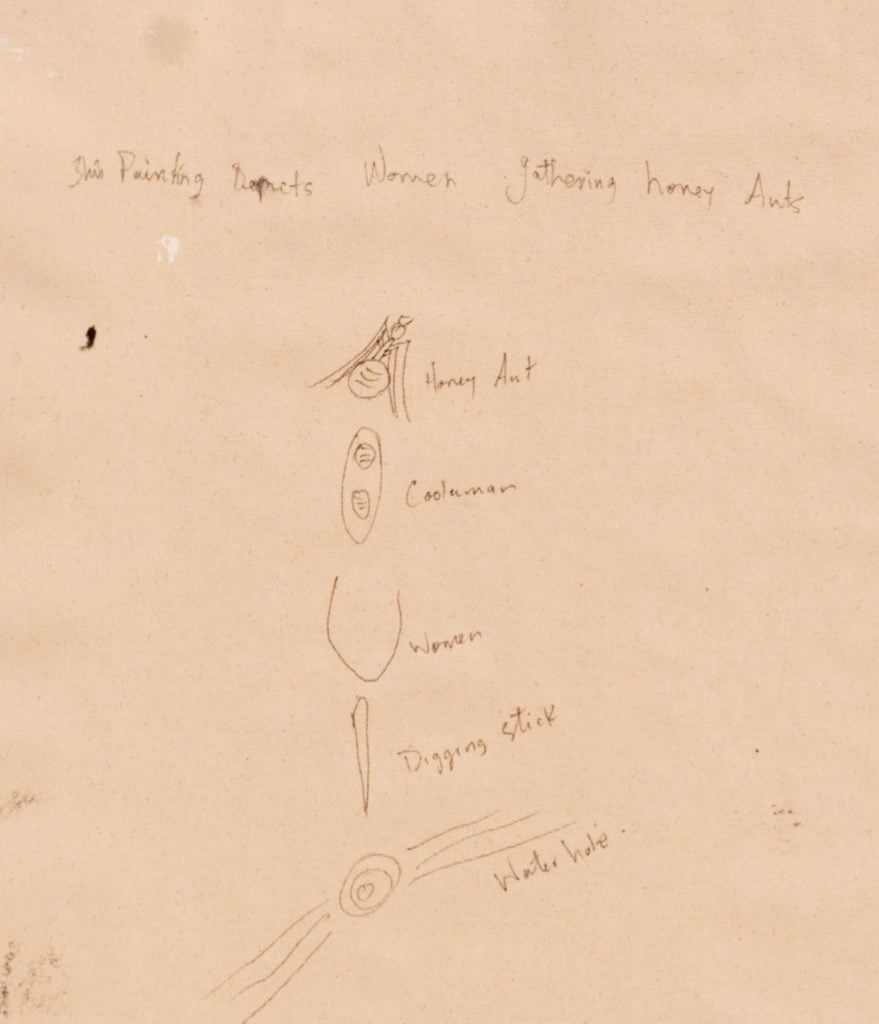 This Painting Depicts Women gathering honey Ants
Honey Ant
Cooluman
Women
Digging stick
Water hole.